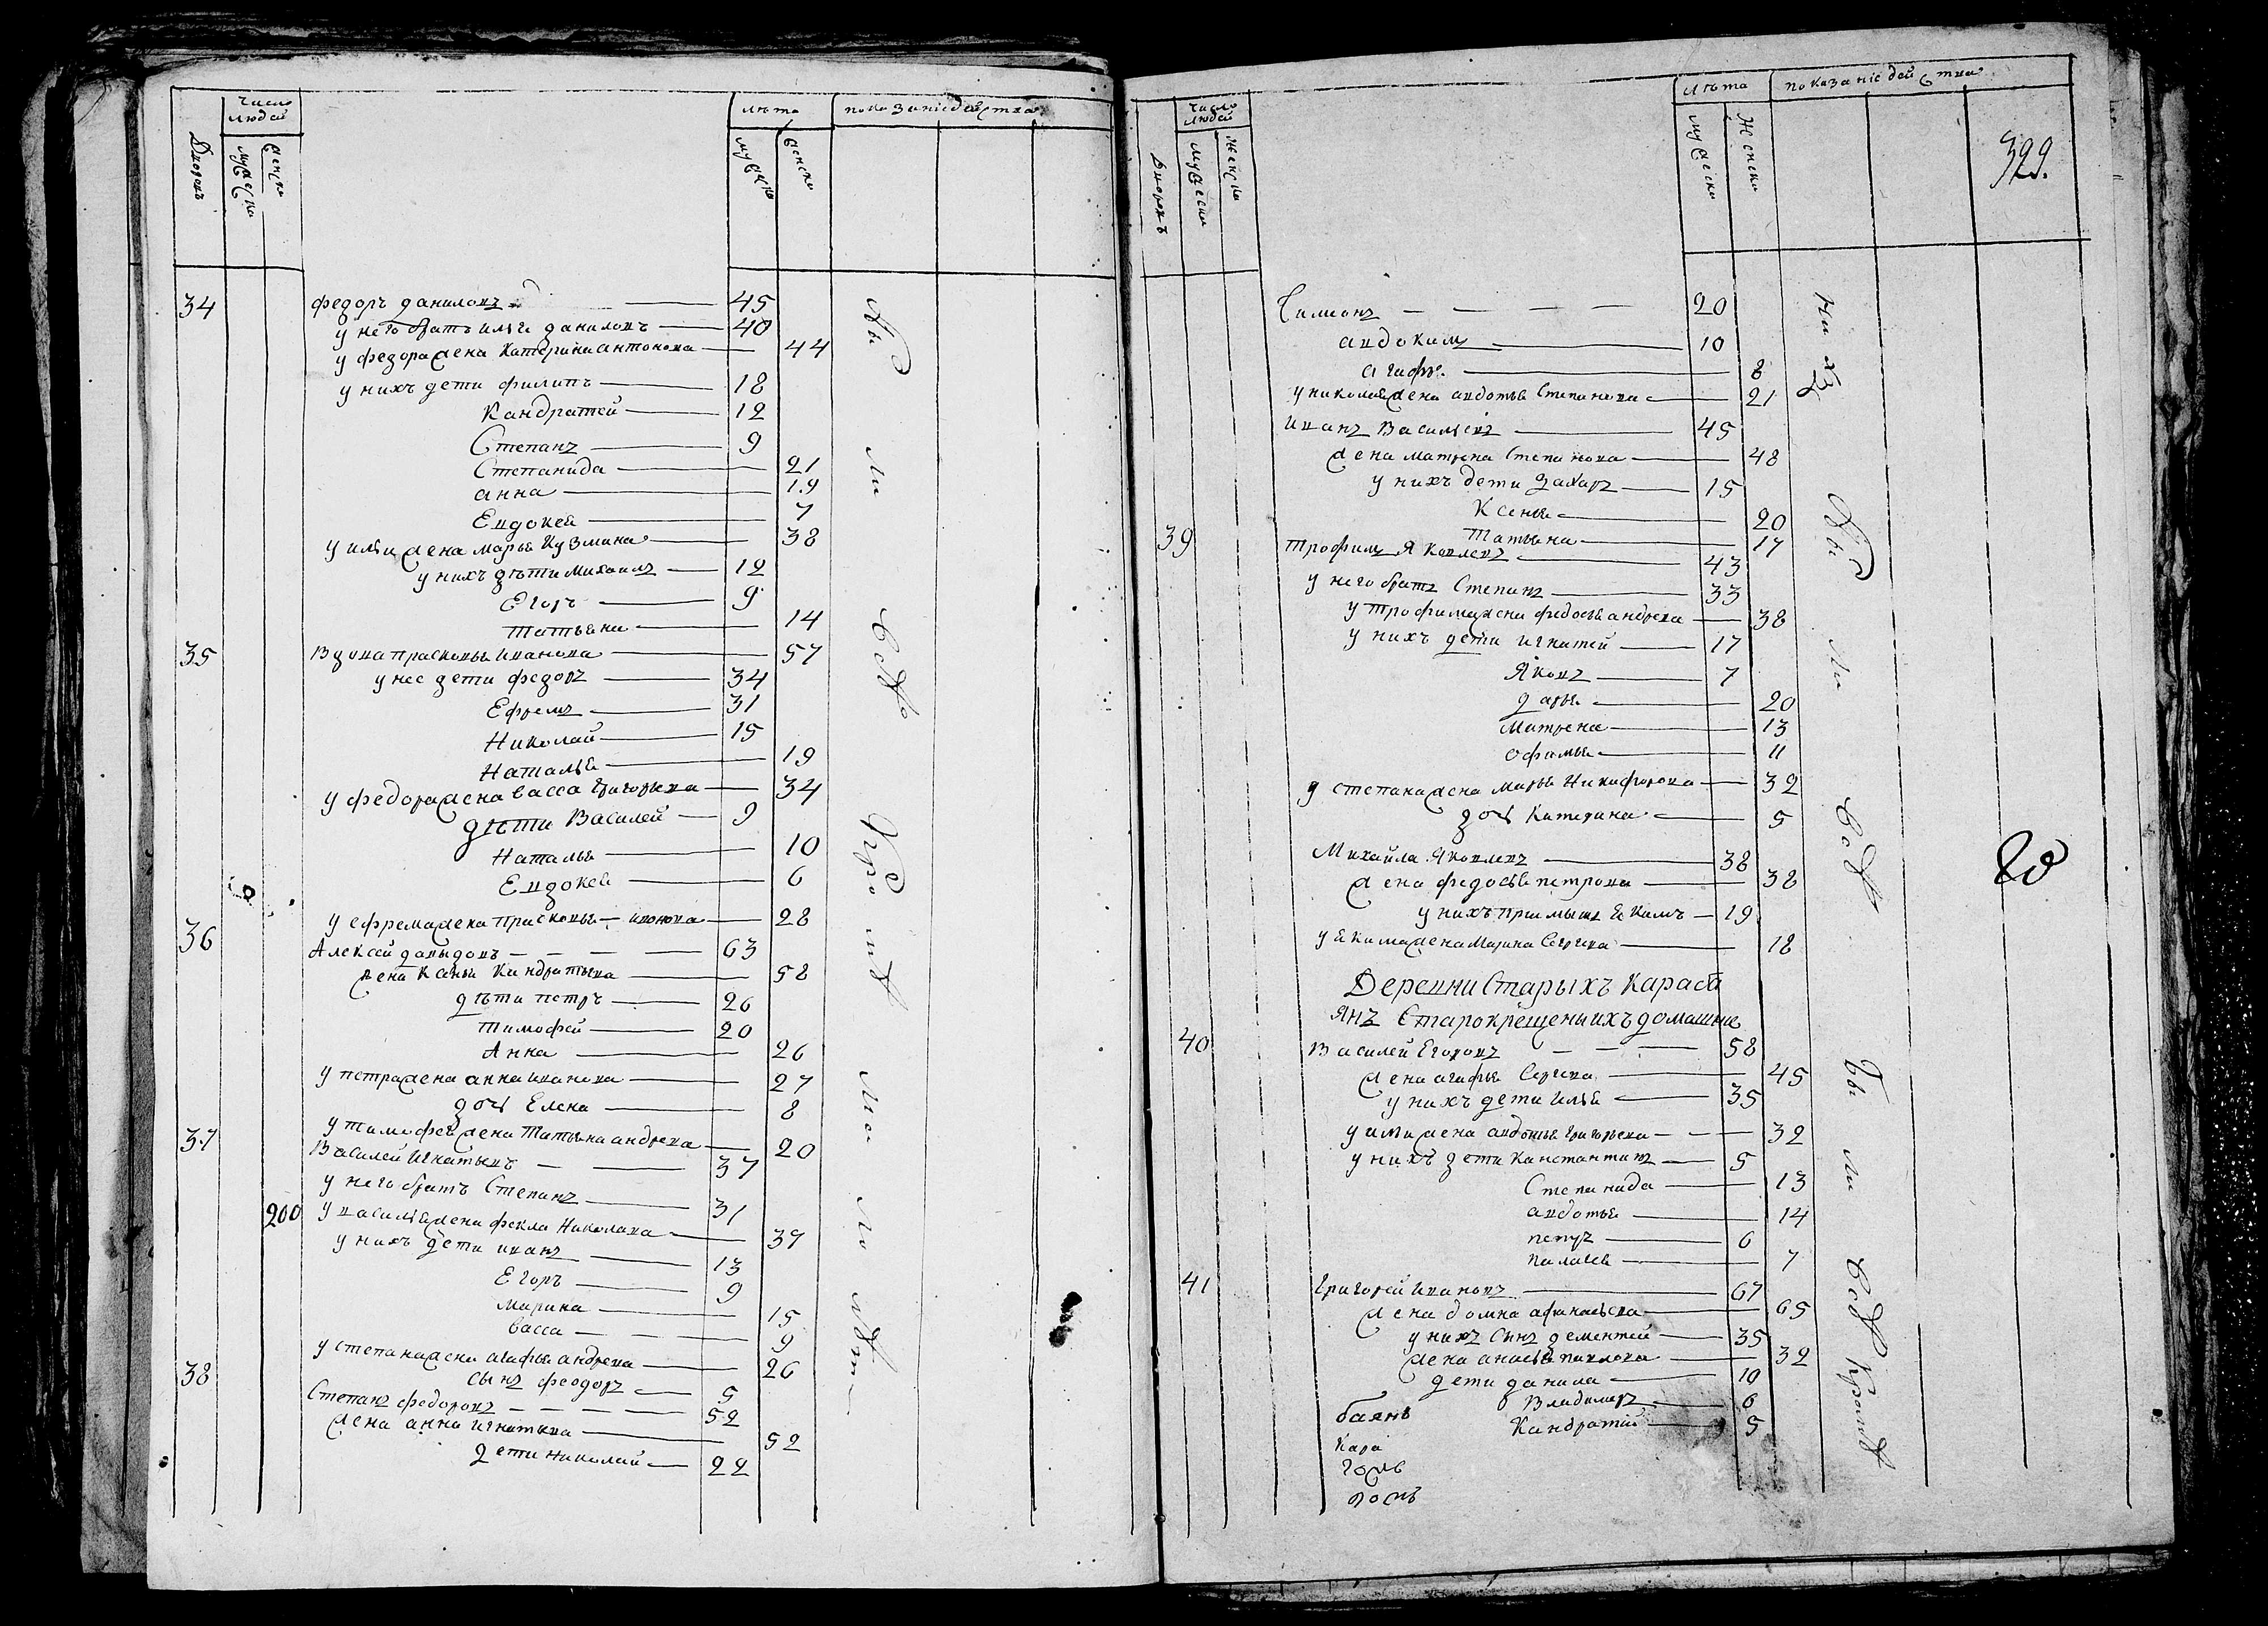 Число людей
лѣта
показаніе действа
Дворовъ
мужески
женски
мужески
женски
34 федоръ даниловъ 45
у него братъ илья даниловъ 40
у федора жена катерина антонова 44
у нихъ дети филипъ 18
Кандратей 12
Степанъ 9
Степанида 21
анна 19
Евдокея 7
у ильи жена марья кузмина 38
у нихъ дѣти михаилъ 12
Егоръ 9
татьяна 14
35 Вдова прасковья иванова 57
у нее дети федоръ 34
Ефремъ 31
Николай 15
Наталья 19
у федора жена васса григорьева 34
дѣти Василей 9
Наталья 10
Евдокея 6
у ефрема жена прасковья 28
36 Алексей давыдовъ 63
жена Ксенья Кандратьева 58
дѣти петръ 26
тимофей 20
Анна 26
у петра жена анна иванова 27
дочь Елена 8
у тимофея жена татьяна андреева 20
37 Василей игнатьевъ 37
у него братъ Степанъ 31
200 у василья жена фекла Николаева 37
у нихъ дети иванъ 13
Егоръ 9
марина 15
васса 9
у степана жена агафья андреева 26
сынъ феодоръ 5
38 Степанъ федоровъ 52
жена анна игнатьева 52
дети николай 22
бы ли все
при то м
Число людей
лѣта
показаніе действа
Дворовъ
мужески
женски
мужески
женски
329.
Симионъ 20
авдокимъ 10
агафья 8
у николая жена авдотья Степанова 21
иванъ Васильевъ 45
жена матрена Степанова 48
у нихъ дети Захаръ 15
Ксенья 20
татьяна 17
39 трофимъ Яковлевъ 43
у него братъ Степанъ 33
у трофима жена федосья андреева 38
у нихъ дети игнатей 17
Яковъ 7
дарья 20
матрена 13
офимья 11
у степана жена марья Никифорова 32
дочь Катерина 5
Михайла Яковлевъ 38
жена федосья петрова 38
у нихъ приимышъ Екимъ 19
у Якима жена Марина Сергеева 18
Деревни Старыхъ Караба
янъ Старокрещеныихъ домашне
40 Василей Егоровъ 58
жена агафья Сергеева 45
у нихъ дети илья 35
у ильи жена авдотья григорьева 32
у нихъ дети Канстантинъ 5
Степанида 13
авдотья 14
петръ 6
палагея 7
41 Григорей ивановъ 67
жена домна афанасьева 65
у нихъ сынъ дементей 35
жена анисья павлова 32
дети данила 10
Владимиръ 6
Кандратий 5
баянъ
Кара
голь
ни хъ
бы ли все
бы ли все кроме